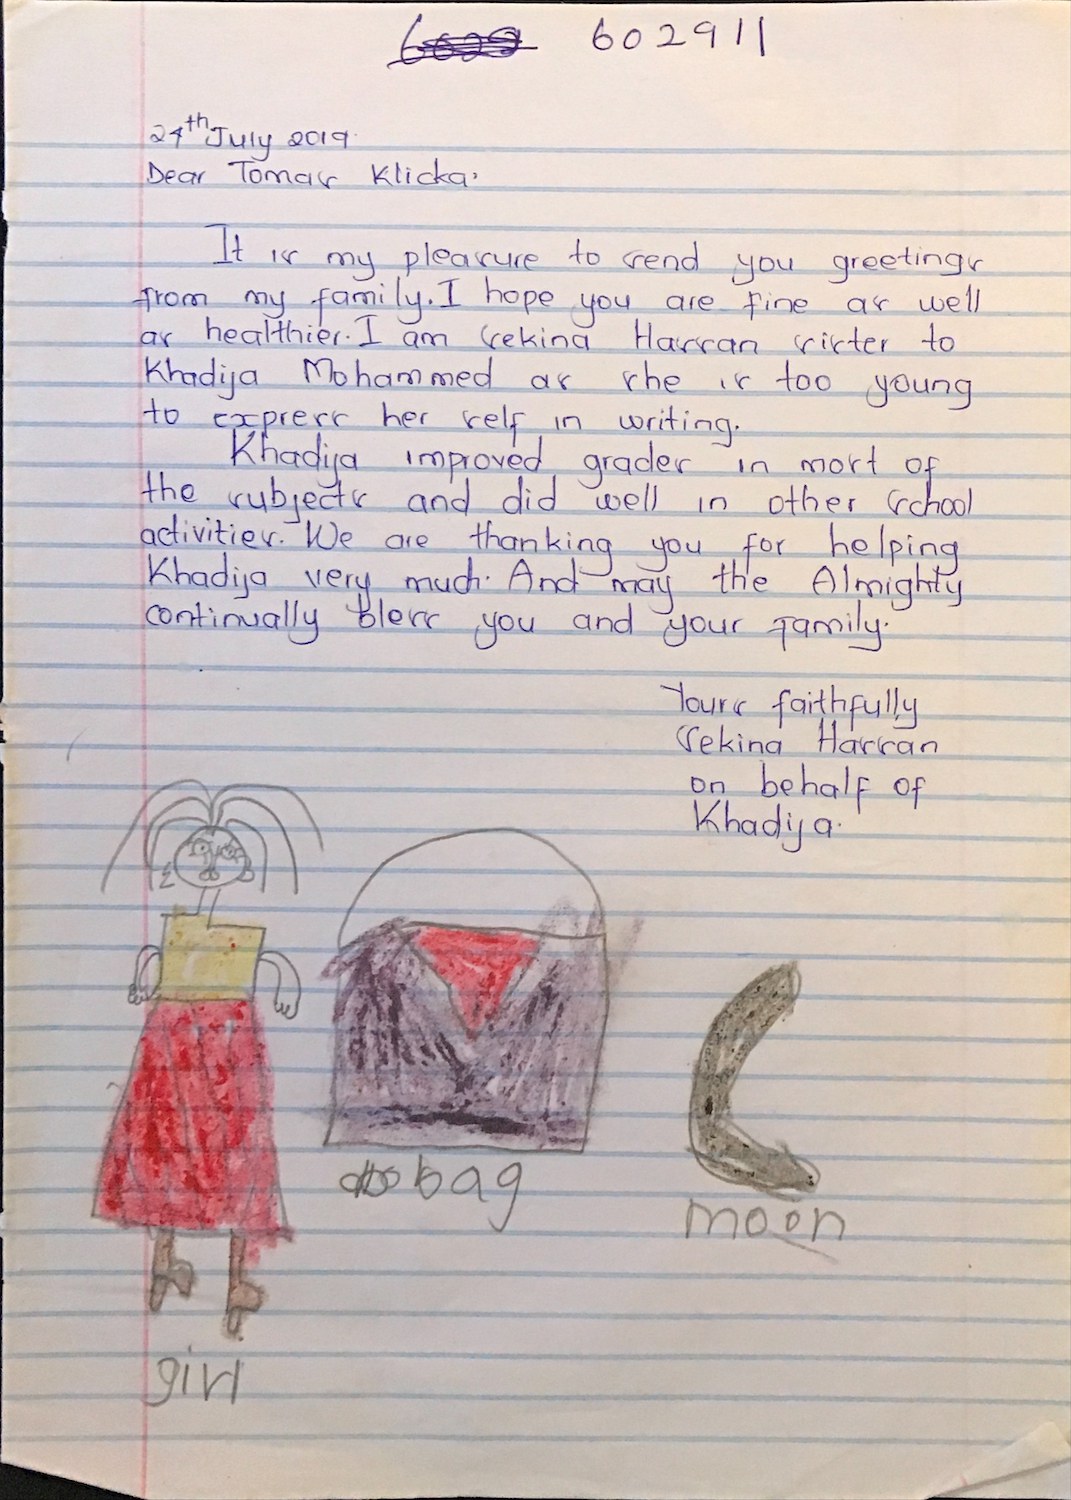 602911
24th July 2019.
Dear Tomas Klicka,
It is my pleasure to send you greetings
from my family. I hope you are fine as well
as healthier. I am Sekina Hassan sister to
Khadija Mohammed as she is too young
to express her self in writing.
Khadija improved grades in most of
the subjects and did well in other school
activities. We are thanking you for helping
Khadija very much. And may the Almighty
continually bless you and your family.
Yours faithfully
Sekina Hassan
on behalf of
Khadija.
bag
moon
girl